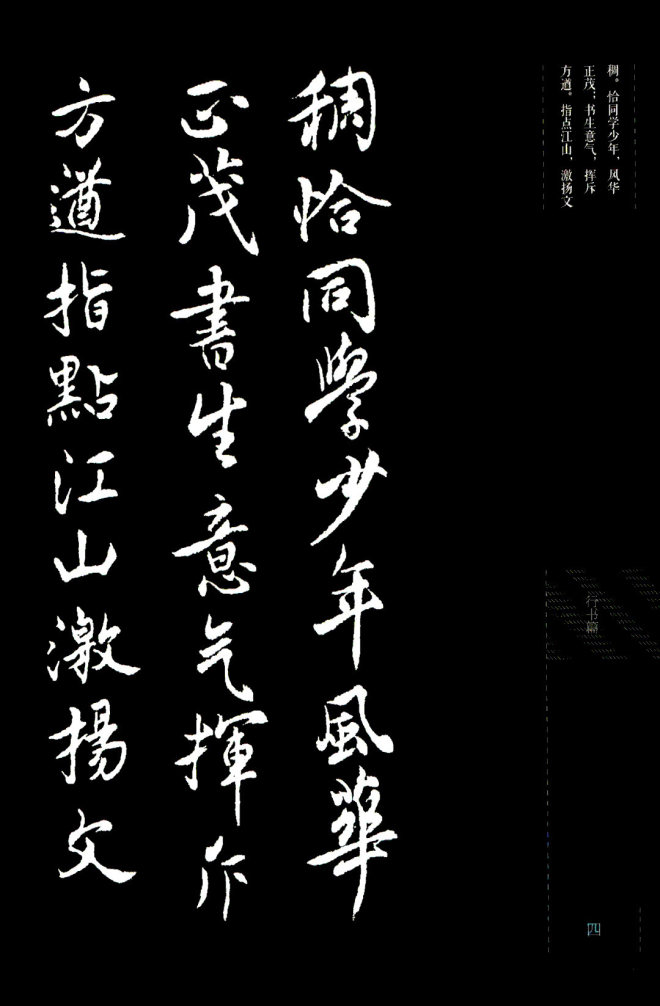 稠。恰同学少年、风华
正茂；书生意气，挥斥
方遒。指点江山、激扬文
稠恰同學少年風華
正茂書生意气揮斥
方遒指點江山激揚文
行书篇
四